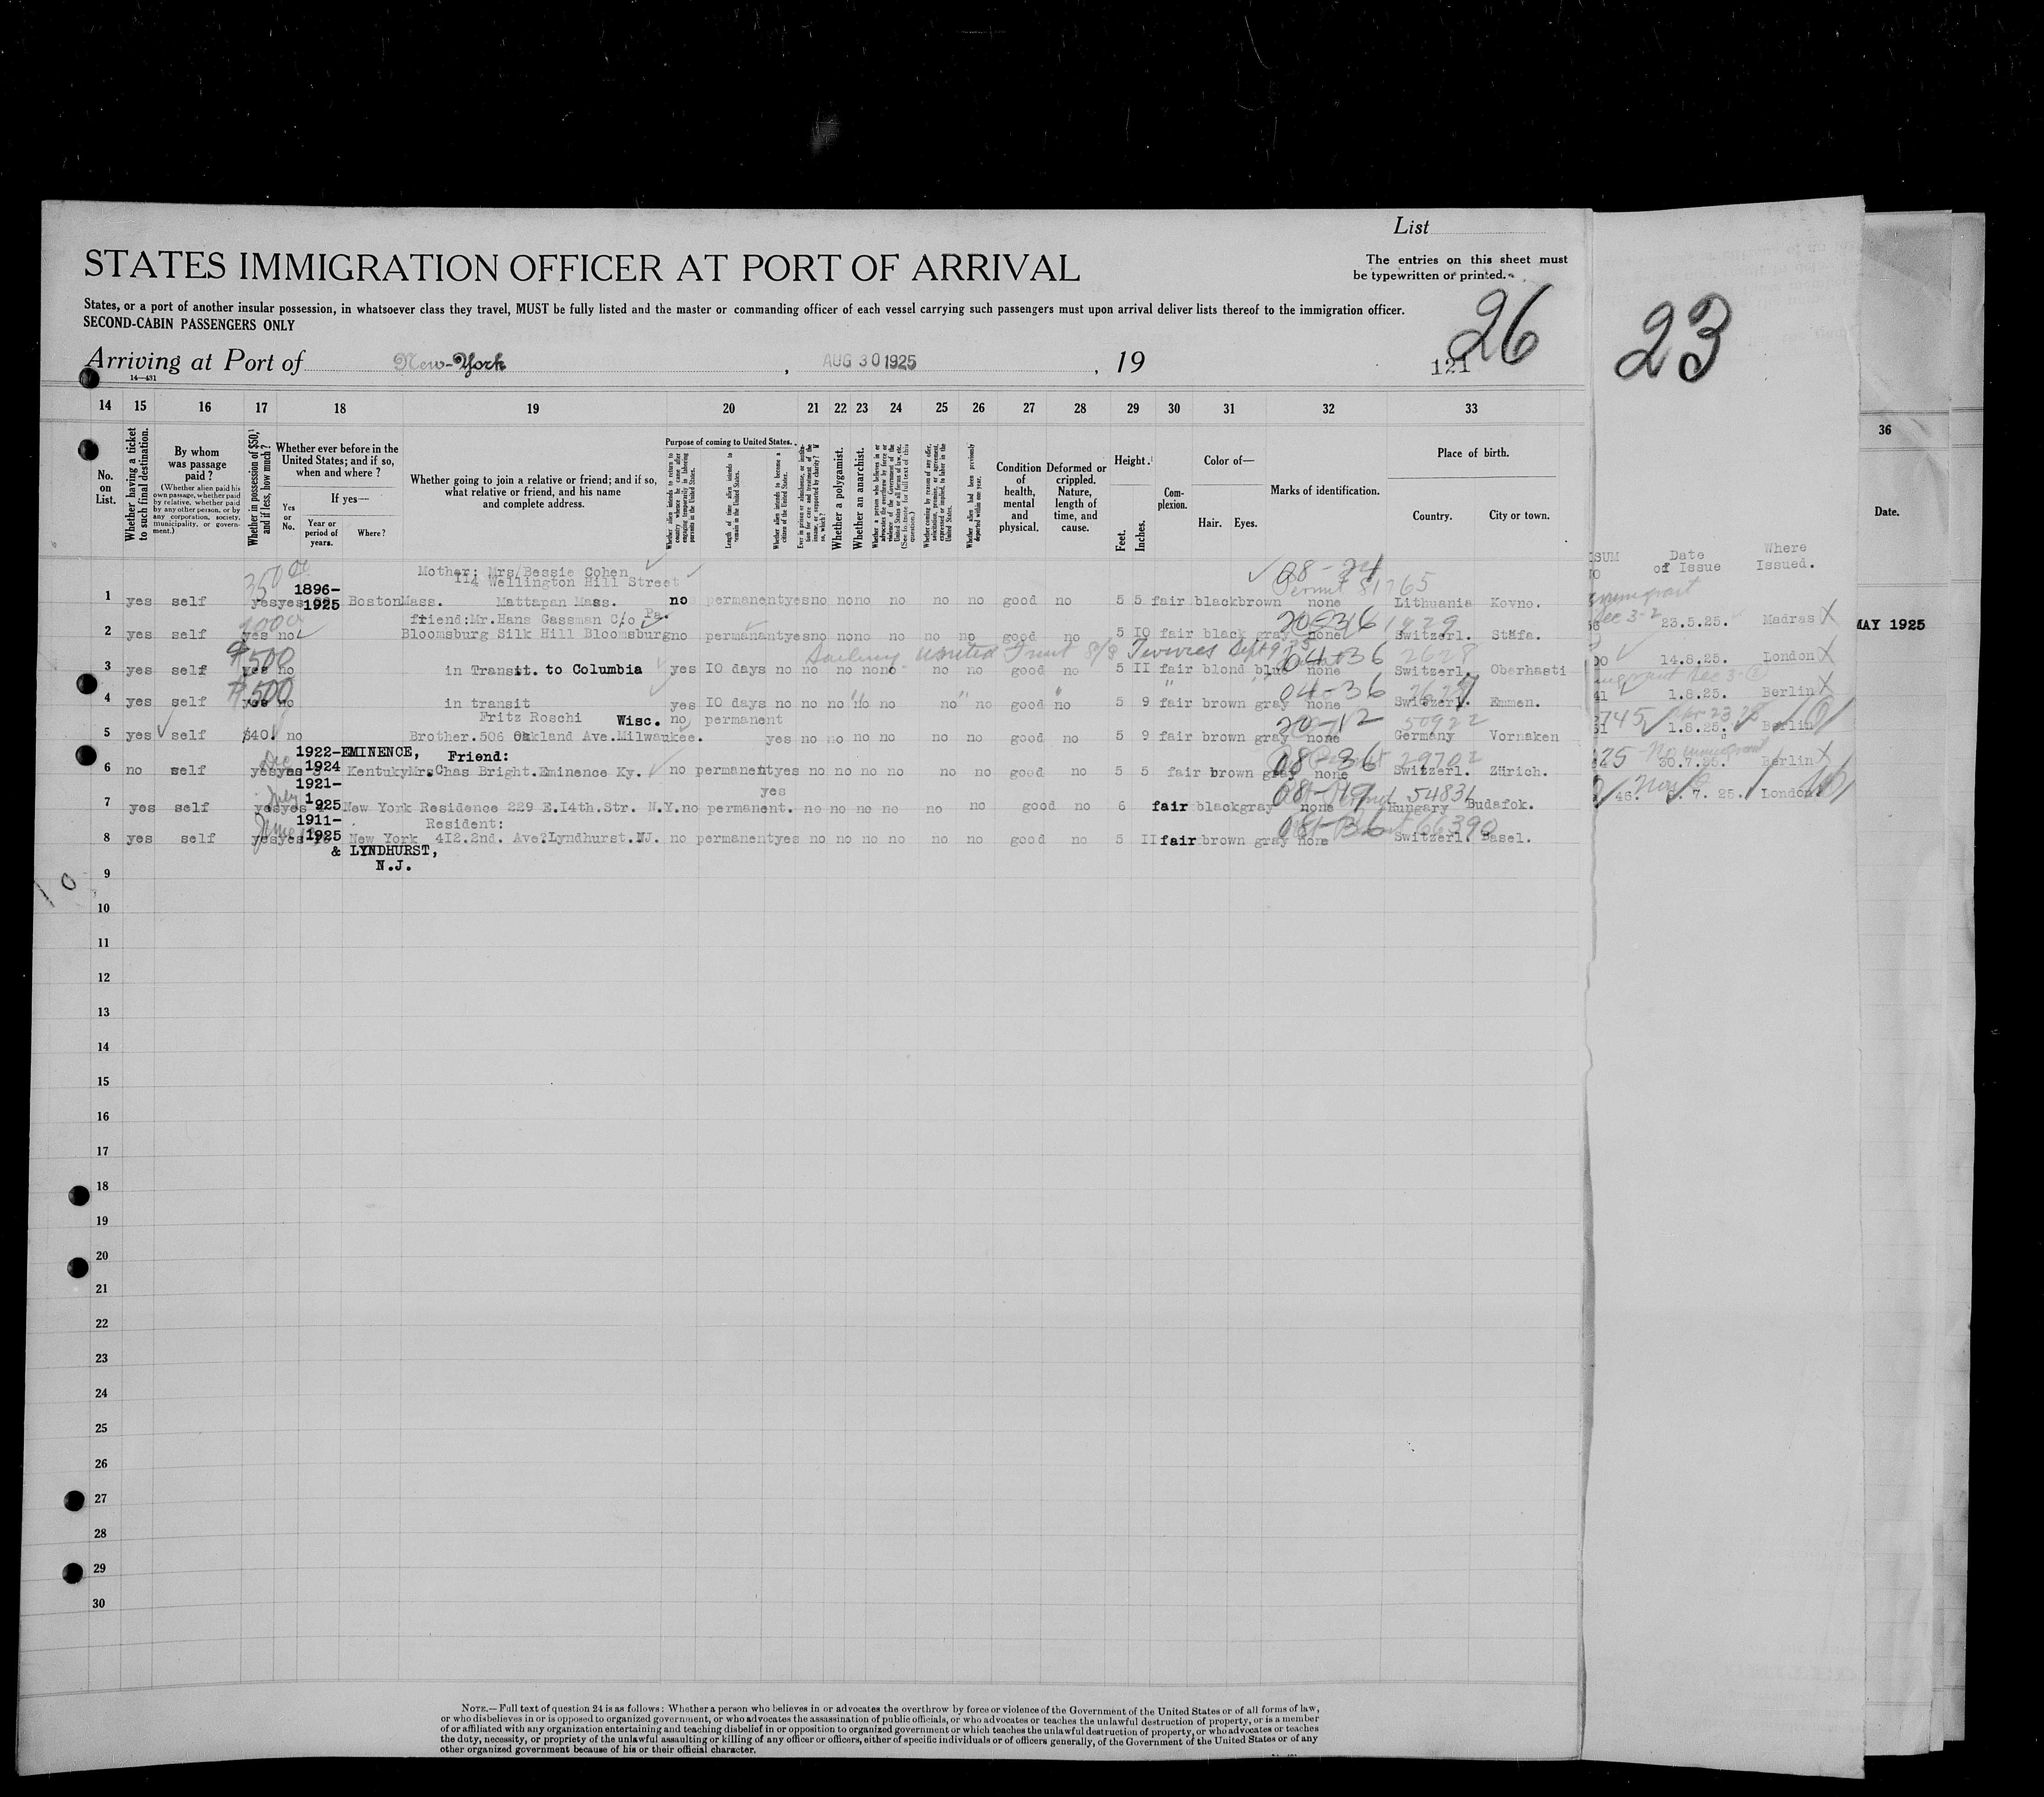 List
STATES IMMIGRATION OFFICER AT PORT OF ARRIVAL
The entries on this sheet must
be typewritten or printed.
States, or a port of another insular possession, in whatsoever class they travel, MUST be fully listed and the master or commanding officer of each vessel carrying such passengers must upon arrival deliver lists thereof to the immigration officer.
SECOND-CABIN PASSENGERS ONLY
26
23
Arriving at Port of New-York, AUG 30 1925, 19
121
14—431
14 15 16 17 18 19 20 21 22 23 24 25 26 27 28 29 30 31 32 33
36
No. on List.
Whether having a ticket to such final destination.
By whom was passage paid?
(Whether alien paid his own passage, whether paid by relative, whether paid by any other person, or by any corporation, society, municipality, or government.)
Whether in possession of $50, and if less, how much?
Whether ever before in the United States; and if so, when and where?
Yes or No.
If yes—
Year or period of years.
Where?
Whether going to join a relative or friend; and if so, what relative or friend, and his name and complete address.
Purpose of coming to United States.
Whether alien intends to return to country whence he came after engaging temporarily in laboring pursuits in the United States.
Length of time alien intends to remain in the United States.
Whether alien intends to become a citizen of the United States.
Whether a polygamist.
Whether an anarchist.
Condition of health, mental and physical.
Deformed or crippled. Nature, length of time, and cause.
Height.
Feet. Inches.
Complexion.
Color of—
Hair. Eyes.
Marks of identification.
Place of birth.
Country. City or town.
Date.
Date of Issue
Where Issued.
Mother: Mrs/Bessie Cohen
114 Wellington Hill Street
350
08-24
Permit 81765
1896-
1 yes self yes yes 1925 Boston Mass. Mattapan Mass. no permanent yes no no no no no no good no 5 5 fair black brown none Lithuania Kovno.
friend:Mr.Hans Gassman C/o Pa.
20-36
2 yes self yes no Bloomsburg Silk Hill Bloomsburg no permanant yes no no no no no no good no 5 10 fair black gray none Switzerl. Stäfa.
23.5.25. Madras X
MAY 1925
$500
Sailing United Fruit S/S Tivives Sept 9
04-36 2628
3 yes self yes no in Transit. to Columbia yes 10 days no no no no no no no good no 5 11 fair blond blue none Switzerl. Oberhasti
14.8.25. London X
$500
04-36
4 yes self yes no in transit yes 10 days no no no no no no no good no 5 9 fair brown gray none Switzerl. Emmen.
1.8.25. Berlin X
Fritz Roschi Wisc. no permanent
20-12 50922
5 yes self $40. no Brother.506 Oakland Ave.Milwaukee. yes no no no no no no good no 5 9 fair brown gray none Germany Vornaken
1.8.25. Berlin
1922- EMINENCE, Friend:
Dec
08-36 29702
6 no self yes yes 1924 Kentuky Mrs.Chas Bright.Eminence Ky. no permanent yes no no no no no no good no 5 5 fair brown gray none Switzerl. Zürich.
30.7.25. Berlin X
1921- yes
July
08-19 54831
7 yes self yes yes 1925 New York Residence 229 E.14th.Str. N.Y. no permanent. no no no no no no good no 6 fair black gray none Hungary Budafok.
7. 25. London
1911- Resident:
June
08-36 66390
8 yes self yes yes 1925 New York 412.2nd. Ave.Lyndhurst.NJ. no permanent yes no no no no no no good no 5 11 fair brown gray none Switzerl. Basel.
& LYNDHURST,
N.J.
9
10
11
12
13
14
15
16
17
18
19
20
21
22
23
24
25
26
27
28
29
30
NOTE.—Full text of question 24 is as follows: Whether a person who believes in or advocates the overthrow by force or violence of the Government of the United States or of all forms of law,
or who disbelieves in or is opposed to organized government, or who advocates the assassination of public officials, or who advocates or teaches the unlawful destruction of property, or is a member
of or affiliated with any organization entertaining and teaching disbelief in or opposition to organized government or which teaches the unlawful destruction of property, or who advocates or teaches
the duty, necessity, or propriety of the unlawful assaulting or killing of any officer or officers, either of specific individuals or of officers generally, of the Government of the United States or of any
other organized government because of his or their official character.